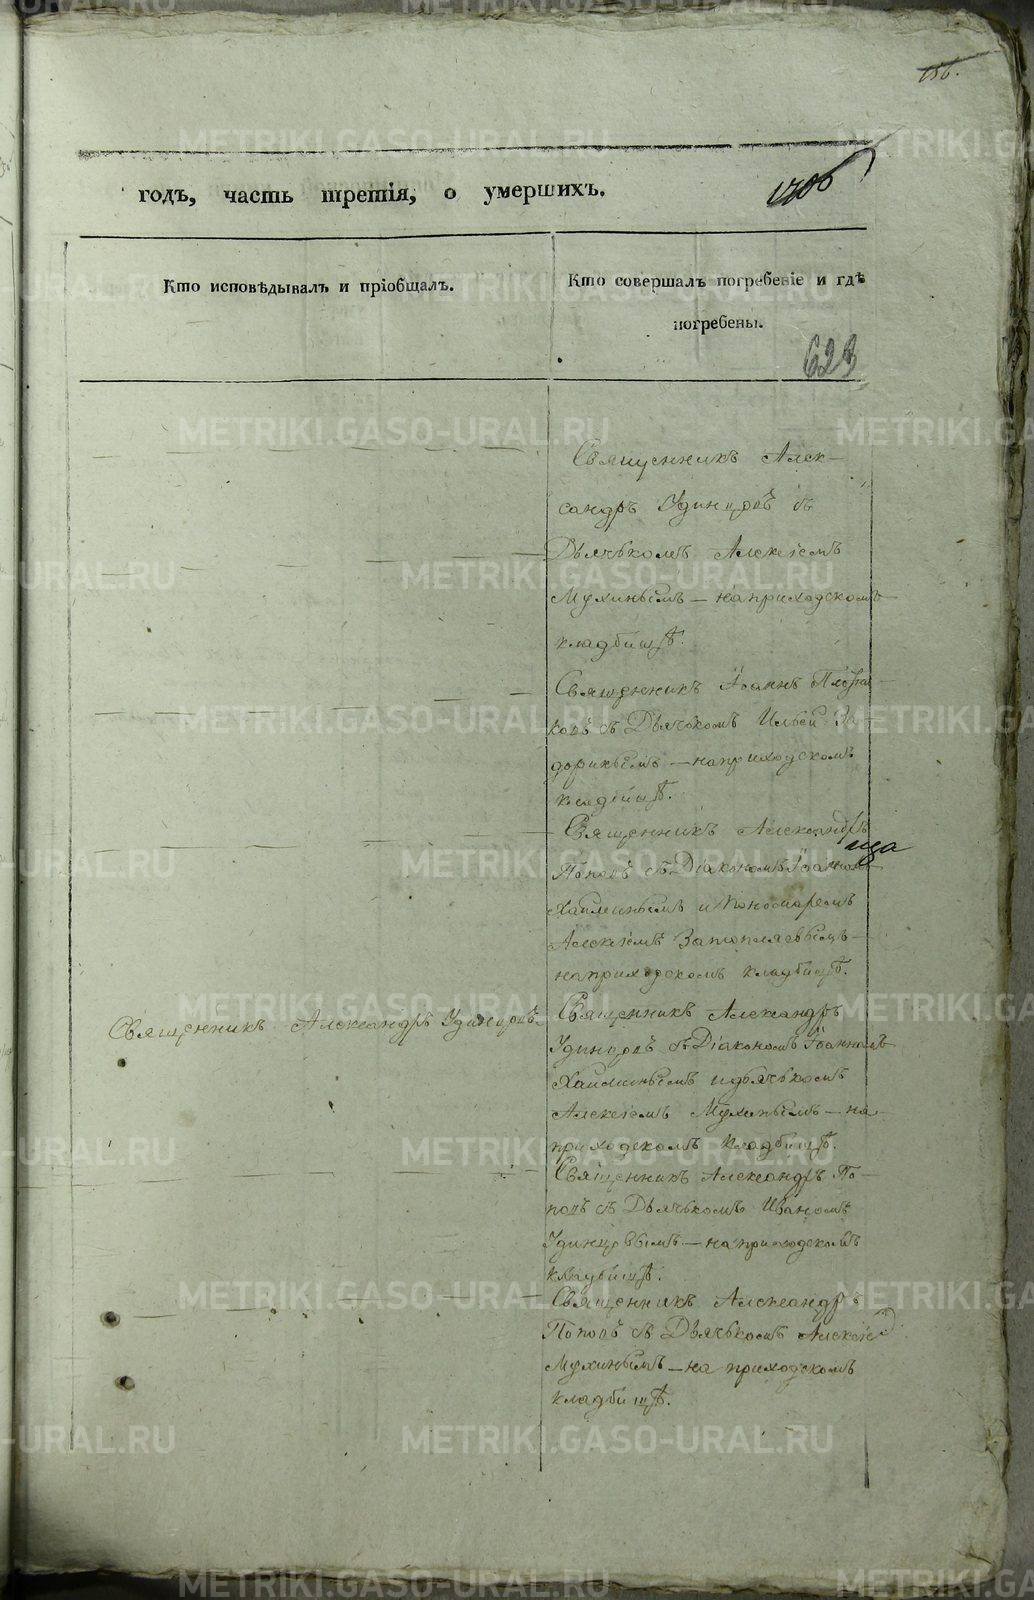 156.
годъ, часть третія, о умершихъ.
1706
Кто исповѣдывалъ и пріобщалъ.
Кто совершалъ погребеніе и гдѣ
погребены.
623
Священникъ Алек-
сандръ Удинцовъ съ
Дьячькомъ Алексіемъ
Мухинымъ — на приходскомъ
кладбищѣ.
Священникъ Іоаннъ
съ Дьячькомъ Ильей За
— на приходскомъ
кладбищѣ.
Священникъ Александръ
Поповъ съ Діакономъ Іоанномъ
и Пономаремъ
Алексіемъ
на приходскомъ кладбищѣ.
Священникъ Александръ Удинцовъ.
Священникъ Александръ
Удинцовъ съ Діакономъ Іоанномъ
и дьячькомъ
Алексіемъ Мухинымъ — на
приходскомъ кладбищѣ.
Священникъ Александръ По-
повъ съ Дьячькомъ Иваномъ
Удинцовымъ — на приходскомъ
кладбищѣ.
Священникъ Александръ
Поповъ съ Дьячькомъ Алексіе
Мухинымъ — на приходскомъ
кладбищѣ.
METRIKI.GASO-URAL.RU